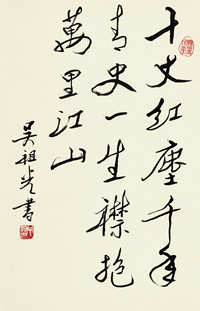 十丈红尘千年
青史一生襟抱
萬里江山
吴祖光書